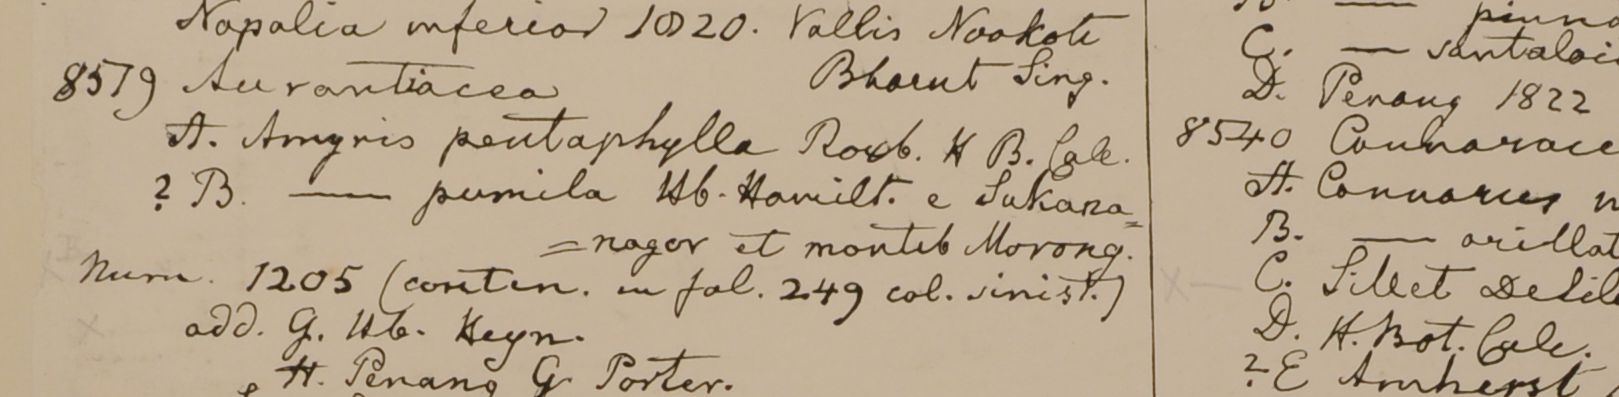 Napalia inferior 1820. Vallis Noakote
8519 Aurantiacea Bharut Sing.
A. Amyris pentaphylla Roxb. H B. Calc.
? B. — pumila Hb. Hamilt. e Sukana=
=nagor et montib Morong.
Num. 1205 (contin. in fol. 249 col. sinist.)
add. G. Hb. Heyn.
H. Penang G Porter.
C. — santaloi
D. Penang 1822
8540 Connarace
A. Connarus
B. — arillat
C. Sillet DeSil
D. H. Bot. Calc.
? E Amherst